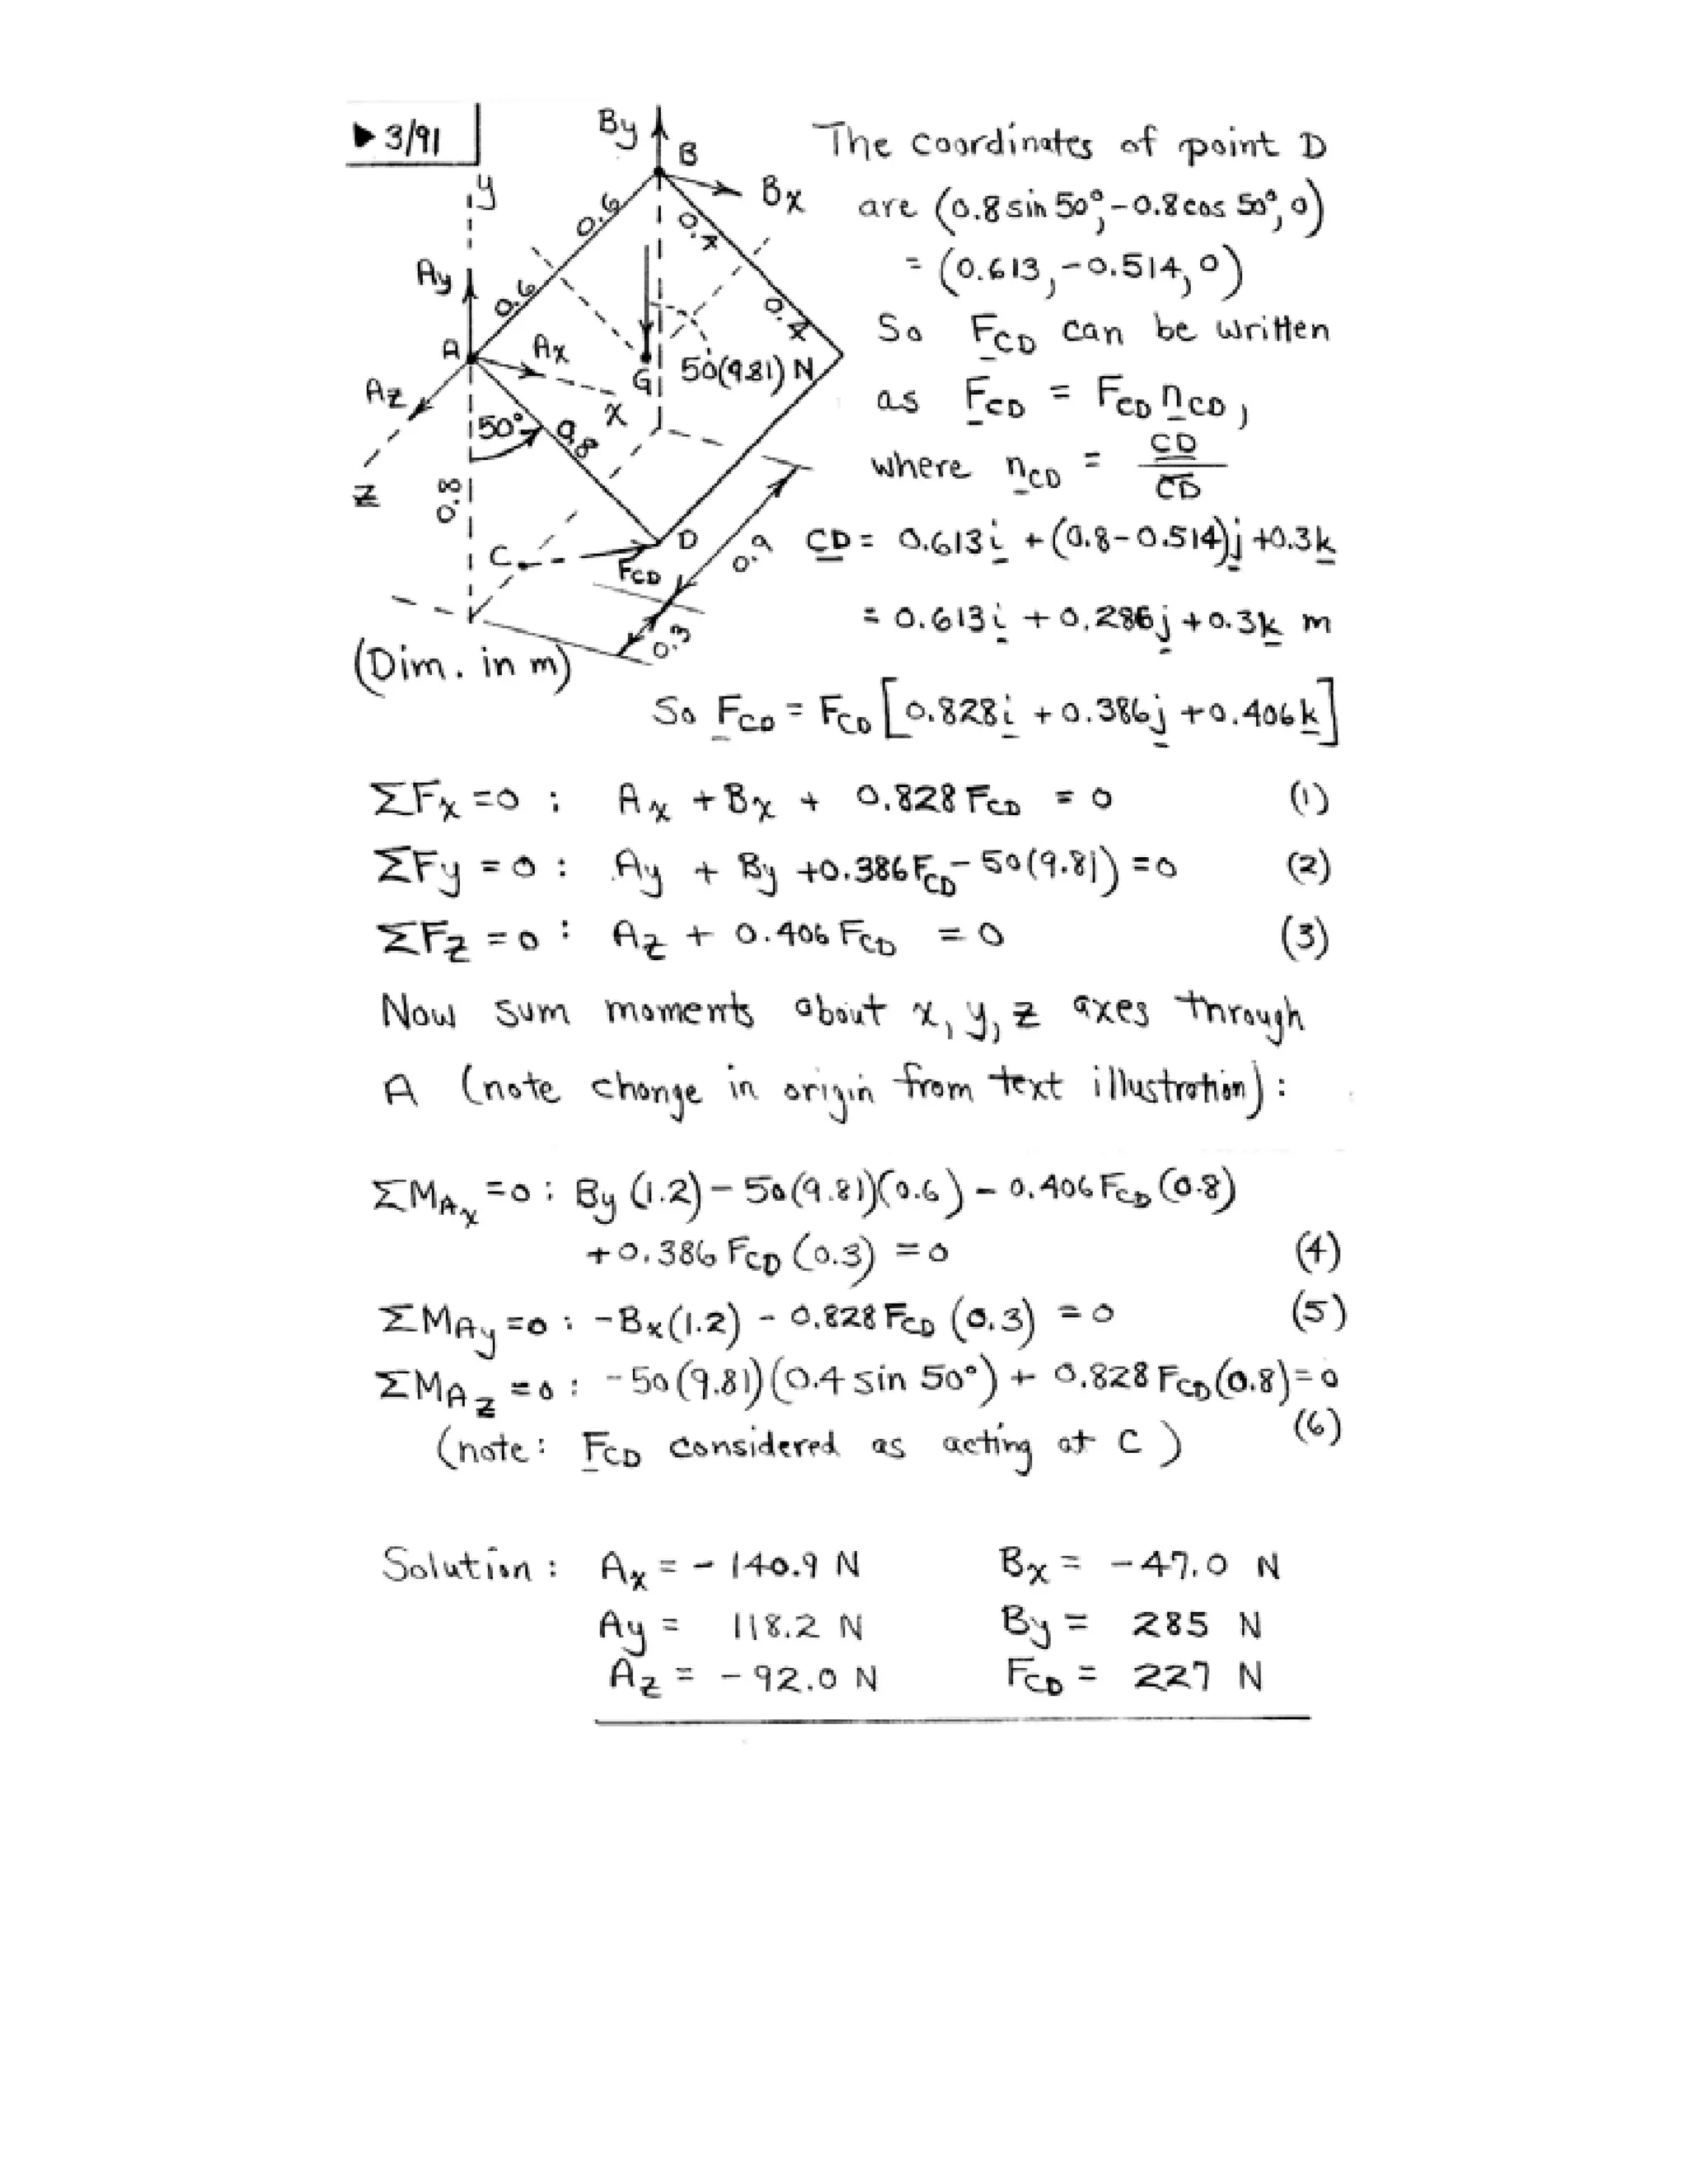 ▶ 3/91
By
B
Bx
y
0.6
0.4
Ay
0.6
0.4
A
Ax
G
50(9.81) N
Az
x
50°
0.8
z
0.8
C
D
FCD
0.9
0.3
(Dim. in m)
The coordinates of point D
are (0.8 sin 50°, -0.8 cos 50°, 0)
= (0.613, -0.514, 0)
So FCD can be written
as FCD = FCD nCD,
where nCD = CD / CD
CD = 0.613i + (0.8-0.514)j +0.3k
= 0.613i + 0.286j + 0.3k m
So FCD = FCD [0.828i + 0.386j + 0.406k]
ΣFx = 0 : Ax + Bx + 0.828 FCD = 0 (1)
ΣFy = 0 : Ay + By +0.386 FCD - 50(9.81) = 0 (2)
ΣFz = 0 : Az + 0.406 FCD = 0 (3)
Now sum moments about x, y, z axes through
A (note change in origin from text illustration) :
ΣMAx = 0 : By (1.2) - 50(9.81)(0.6) - 0.406 FCD (0.8)
+ 0.386 FCD (0.3) = 0 (4)
ΣMAy = 0 : -Bx(1.2) - 0.828 FCD (0.3) = 0 (5)
ΣMAz = 0 : -50(9.81)(0.4 sin 50°) + 0.828 FCD(0.8) = 0
(6)
(note : FCD considered as acting at C)
Solution : Ax = - 140.9 N Bx = - 47.0 N
Ay = 118.2 N By = 285 N
Az = - 92.0 N FCD = 227 N